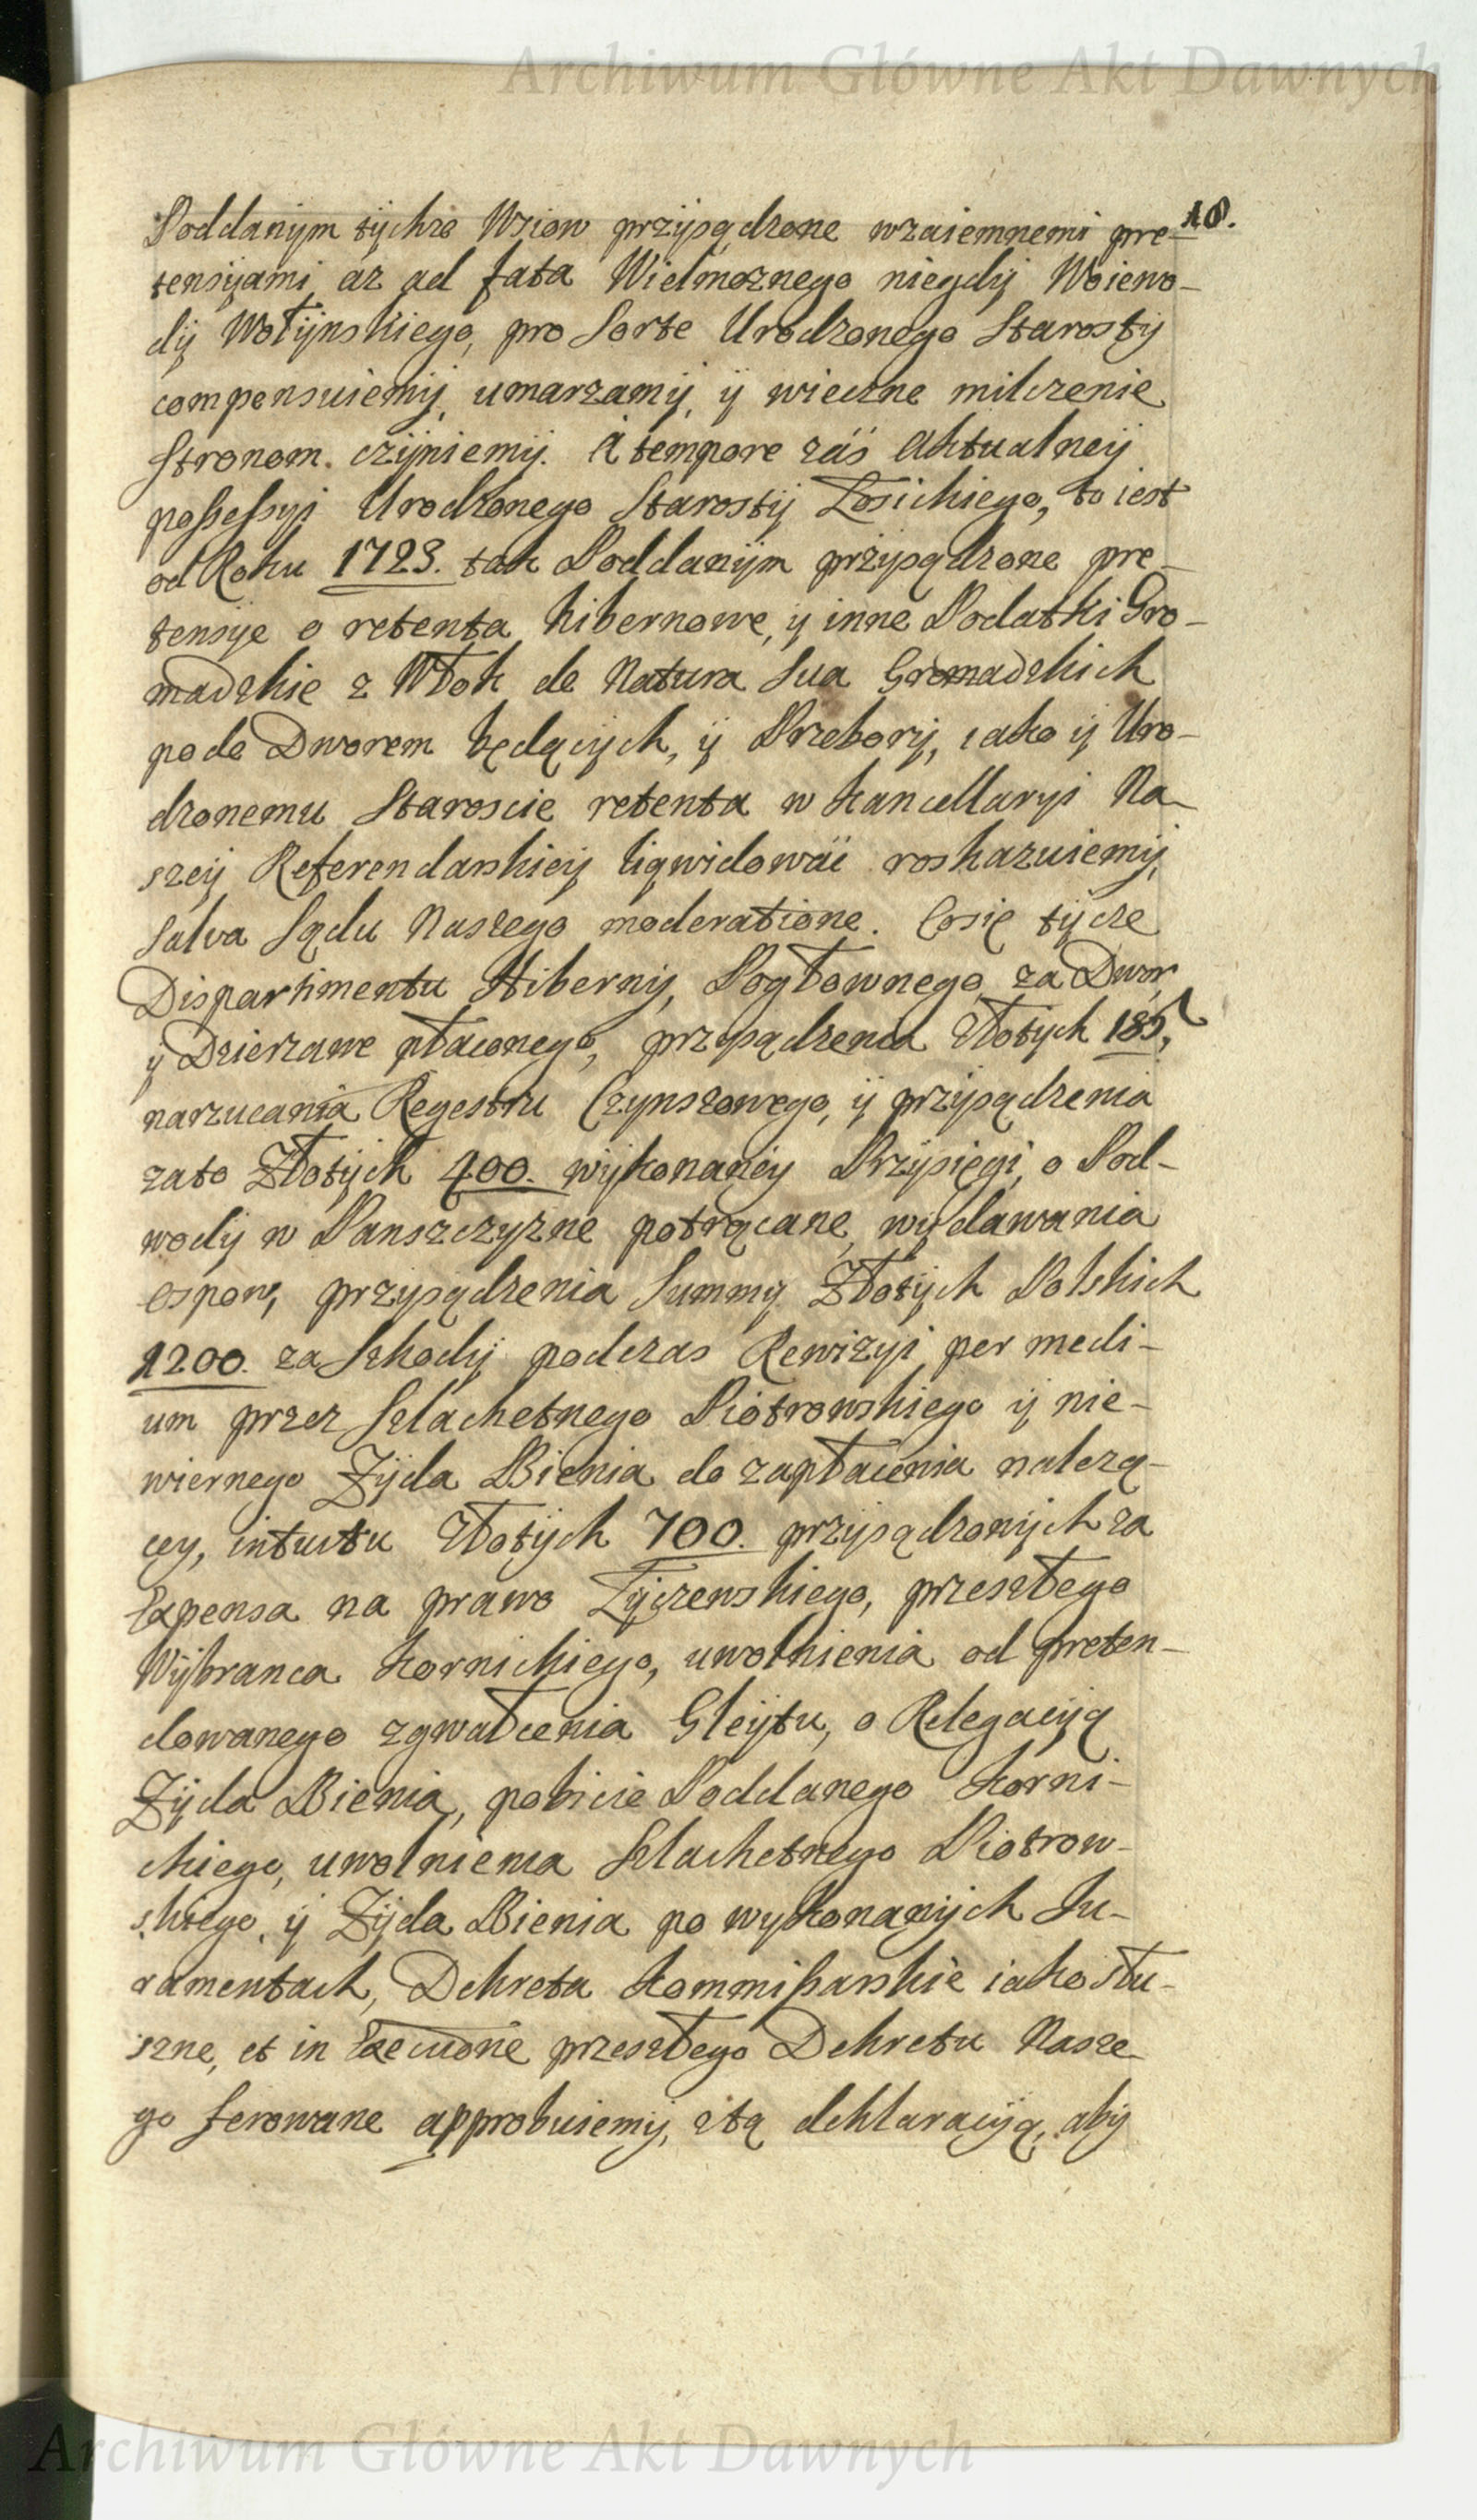 Archiwum Główne Akt Dawnych
10.
Poddanÿm tÿchże Wsiow przÿsądzone wzaiemnemi pre-
tensÿiami, aż ad fata Wielmożnego niegdÿ Woiewo-
dÿ Wołÿnskiego, pro Sorte Urodzonego Starostÿ
compensuiemÿ, umarzamÿ, ÿ wieczne milczenie
Stronom. czÿniemÿ. A tempore záś Aktualneÿ
poßeßyi Urodzonego Starostÿ Łosickiego, to iest
od Roku 1723. tak Poddanÿm przysądzone pre-
tensye o retenta hibernowe, ÿ inne Podatki Gro-
madzkie z Włok de Natura Sua Gromadzkich
pode Dworem będącÿch, ÿ Przeborÿ, iako ÿ Uro-
dzonemu Staroscie retenta w Kancellaryi Na-
szeÿ Referendarskieÿ liqwidowáć roskazuiemÿ,
Salva Sądu Naszego moderatione. Cosię tÿcze
Dispartimentu Hibernÿ, Pogłownego, za Dwor,
ÿ Dzierzawe płaconego, przysądzenia Złotÿch 185,
narzucania Regestru Czynszowego, ÿ przÿsądzenia
zato Złotÿch 400. wÿkonaneÿ Przÿsięgi, o Pod-
wodÿ w Panszczyznę potrącane, wÿdawania
ospow, przysądzenia Summy Złotÿch Polskich
1200. za Szkodÿ podczas Rewizyi per medi-
um przez Szlachetnego Piotrowskiego ÿ nie-
wiernego Zÿda Bienia do zapłacenia należą-
cey, intuitu Złotÿch 700. przÿsądzonÿch za
Expensa na prawo Zÿczewskiego, przeszłego
Wÿbranca Kornickiego, uwolnienia od preten-
dowanego zgwałcenia Gleÿtu, o Relegacÿą
Zÿda Bienia, pobicie Poddanego Korni-
ckiego, uwolnienia Szlachetnego Piotrow-
skiego, ÿ Zÿda Bienia po wykonanÿch Ju-
ramentach, Dekreta Kommißarskie iako słu-
szne, et in Executione przeszłego Dekretu Nasze-
go ferowane approbuiemÿ, ztą deklaracÿą, abÿ
Archiwum Główne Akt Dawnych